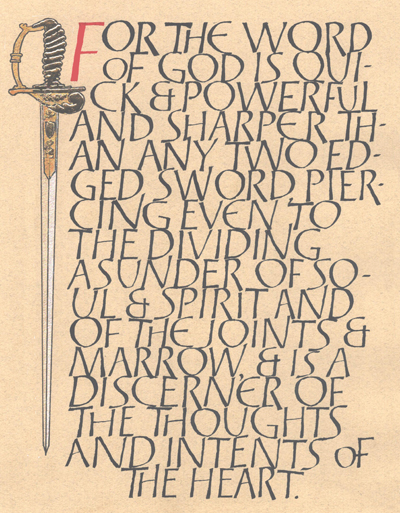 FOR THE WORD
OF GOD IS QUI-
CK & POWERFUL
AND SHARPER TH-
AN ANY TWO ED-
GED SWORD, PIER-
CING EVEN TO
THE DIVIDING
ASUNDER OF SO-
UL & SPIRIT AND
OF THE JOINTS &
MARROW, & IS A
DISCERNER OF
THE THOUGHTS
AND INTENTS OF
THE HEART.